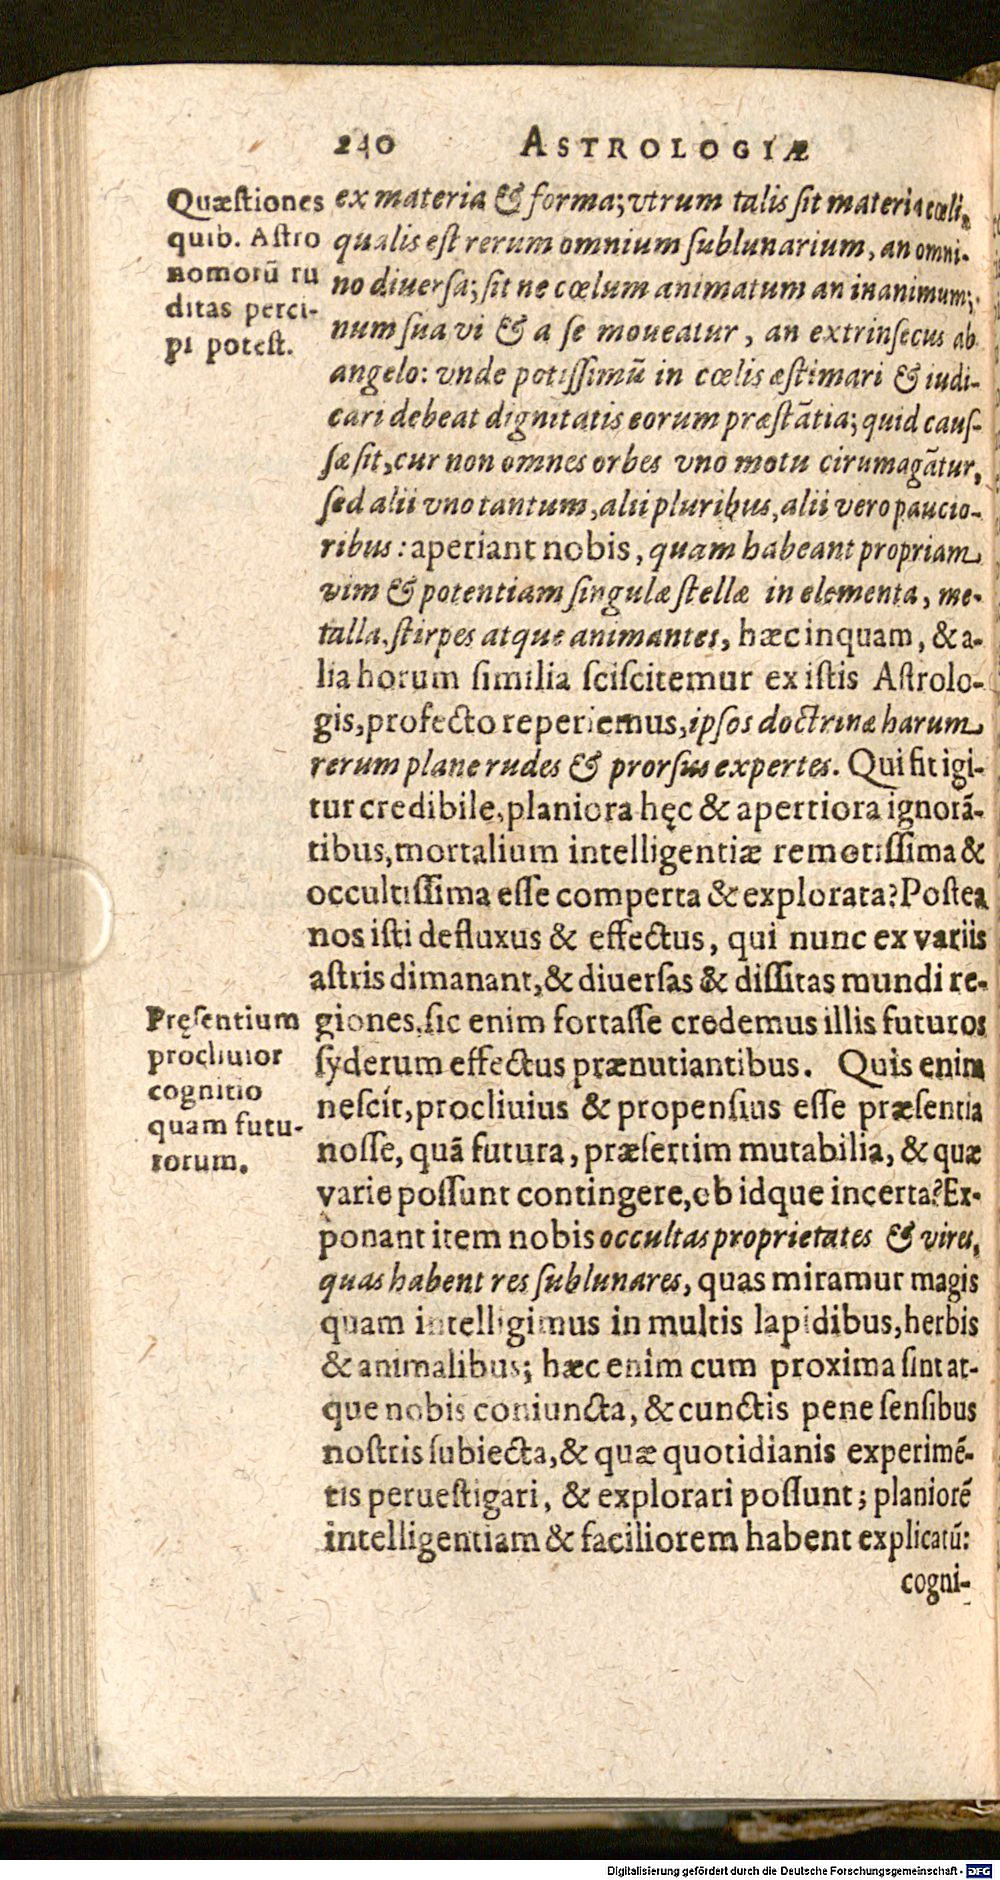 240 ASTROLOGIÆ
Quæſtiones
quib. Aſtro
nomorũ ru
ditas perci-
pi poteſt.
ex materia & forma; vtrum talis ſit materia cœli,
qualis eſt rerum omnium ſublunarium, an omni-
no diuerſa; ſit ne cœlum animatum an inanimum;
num ſua vi & a ſe moueatur, an extrinſecus ab
angelo: vnde potiſſimũ in cœlis æſtimari & iudi-
cari debeat dignitatis eorum præſtãtia; quid cauſ-
ſæ ſit, cur non omnes orbes vno motu cirumagãtur,
ſed alii vno tantum, alii pluribus, alii vero paucio-
ribus: aperiant nobis, quam habeant propriam
vim & potentiam ſingulæ ſtellæ in elementa, me-
talla, ſtirpes atque animantes, hæc inquam, & a-
lia horum ſimilia ſciſcitemur ex iſtis Aſtrolo-
gis, profecto reperiemus, ipſos doctrinæ harum
rerum plane rudes & prorſus expertes. Qui fit igi-
tur credibile, planiora hęc & apertiora ignorã-
tibus, mortalium intelligentiæ remotiſſima &
occultiſſima eſſe comperta & explorata? Poſtea
nos iſti defluxus & effectus, qui nunc ex variis
aſtris dimanant, & diuerſas & diſſitas mundi re-
giones, ſic enim fortaſſe credemus illis futuros
ſyderum effectus prænutiantibus. Quis enim
neſcit, procliuius & propenſius eſſe præſentia
noſſe, quã futura, præſertim mutabilia, & quæ
varie poſſunt contingere, ob idque incerta? Ex-
ponant item nobis occultas proprietates & vires,
quas habent res ſublunares, quas miramur magis
quam intelligimus in multis lapidibus, herbis
& animalibus; hæc enim cum proxima ſint at-
que nobis coniuncta, & cunctis pene ſenſibus
noſtris ſubiecta, & quæ quotidianis experimẽ-
tis perueſtigari, & explorari poſſunt; planiorẽ
intelligentiam & faciliorem habent explicatũ:
cogni-
Pręſentium
procliuior
cognitio
quam futu-
rorum.
Digitalisierung gefördert durch die Deutsche Forschungsgemeinschaft - DFG